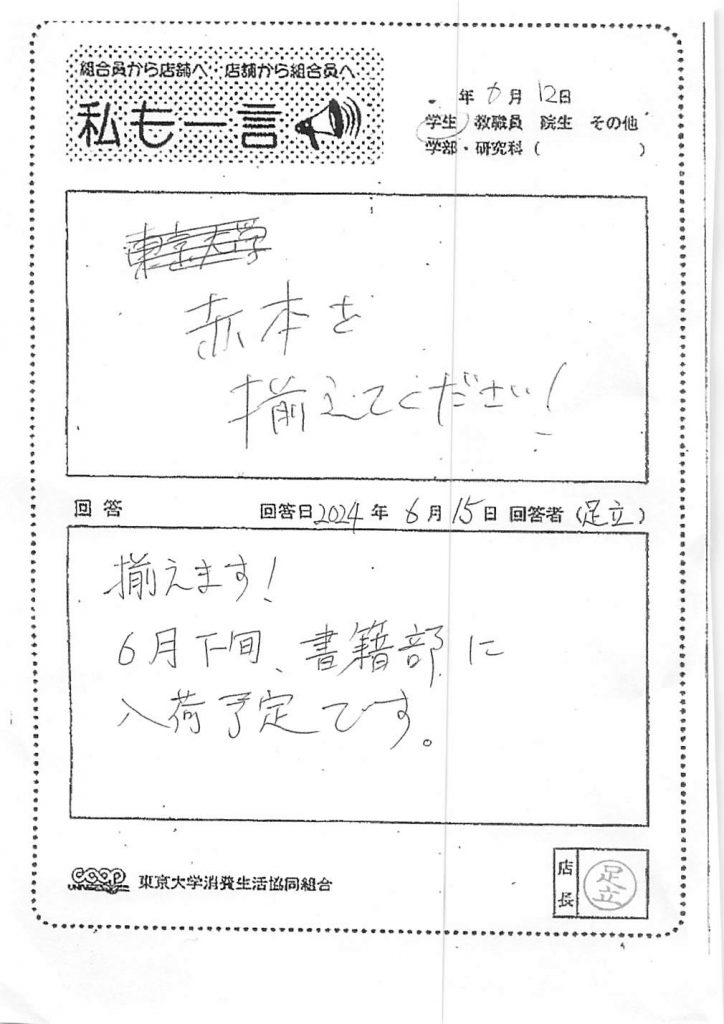 組合員から店舗へ・店舗から組合員へ
私も一言
年6月12日
学生 教職員 院生 その他
学部・研究科( )
東京大学
赤本を
揃えてください!
回答 回答日2024年6月15日 回答者(足立)
揃えます!
6月下旬、書籍部に
入荷予定です。
coop 東京大学消費生活協同組合
店長 足立